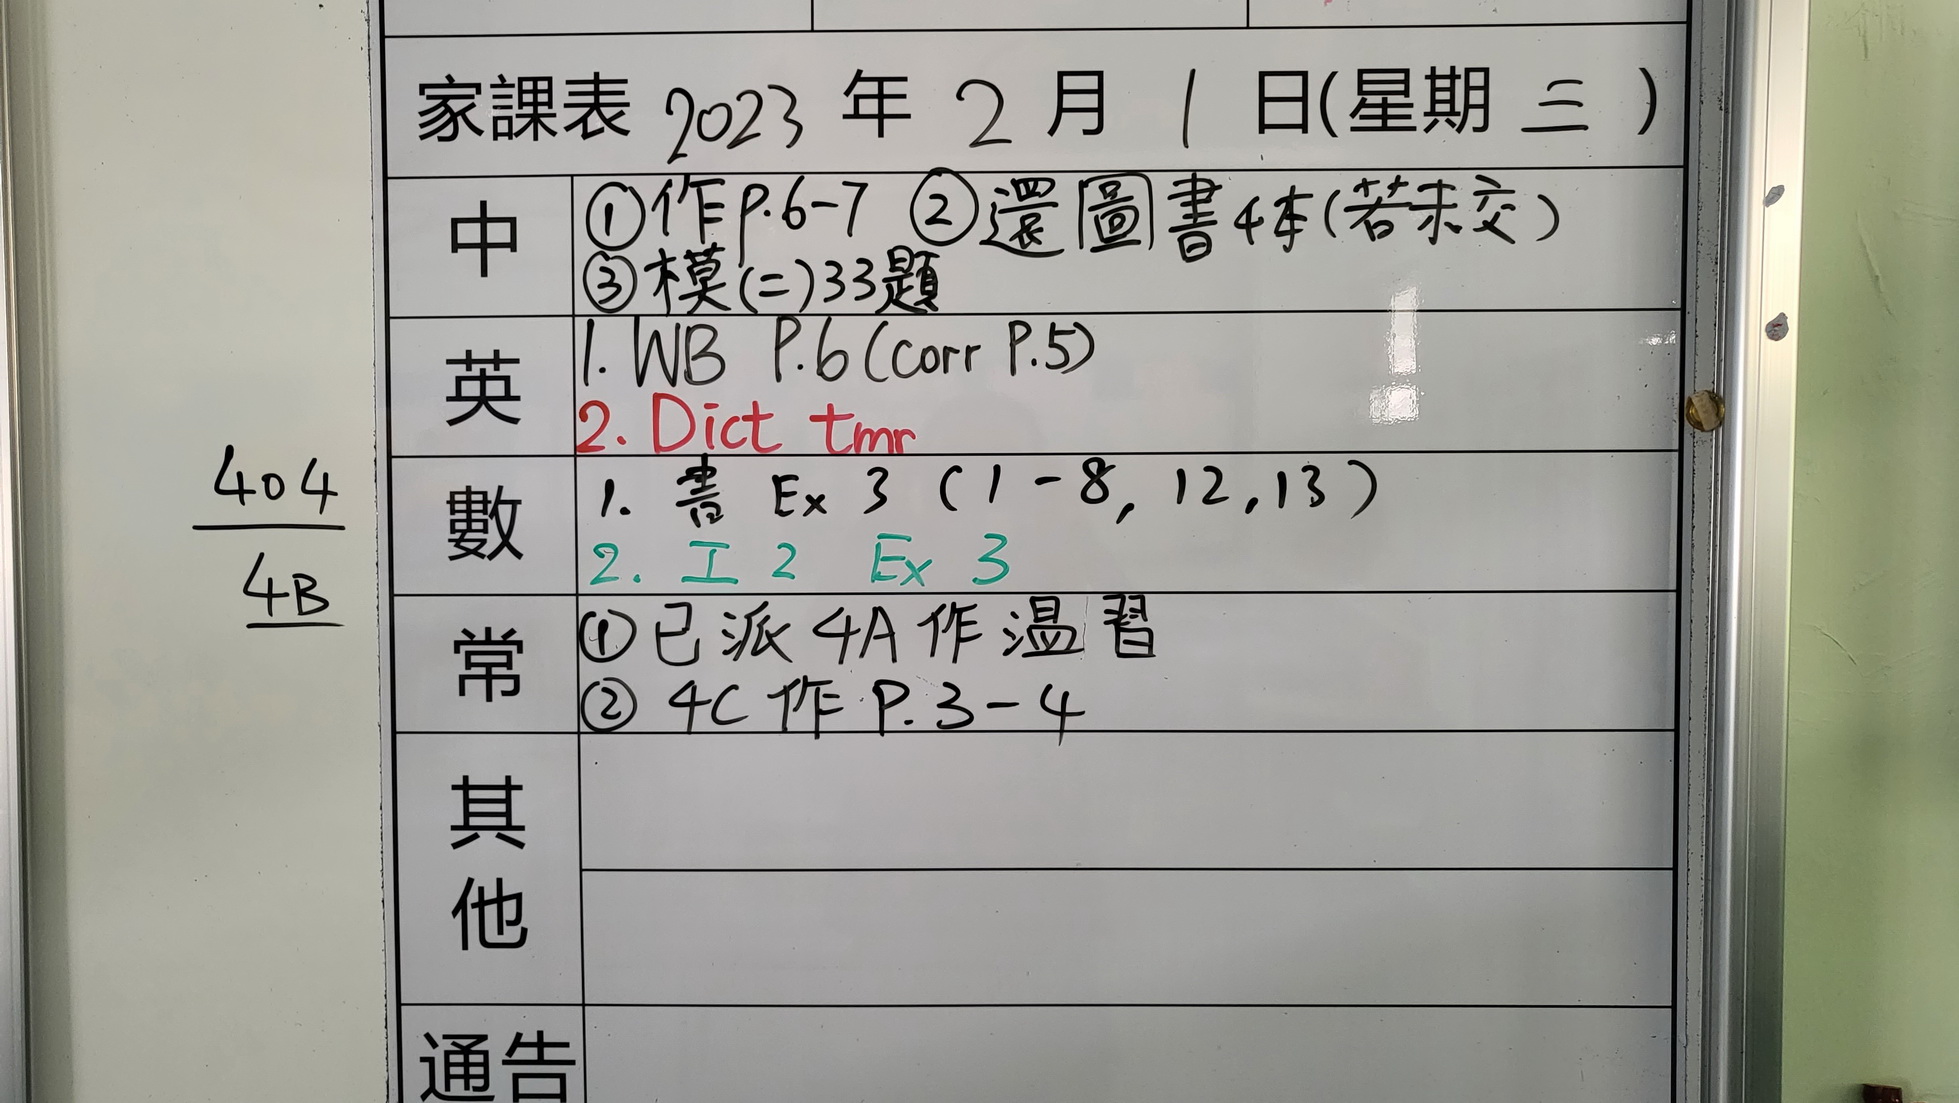 家課表 2023 年 2 月 1 日(星期 三 )
中
①作P.6-7 ②還圖書4本(若未交)
③模(二)33題
英
1. WB P.6(corr P.5)
2. Dict tmr
404
4B
數
1. 書 Ex 3 (1-8, 12,13)
2. 工2 Ex 3
常
①已派4A作溫習
②4C作P.3-4
其他
通告